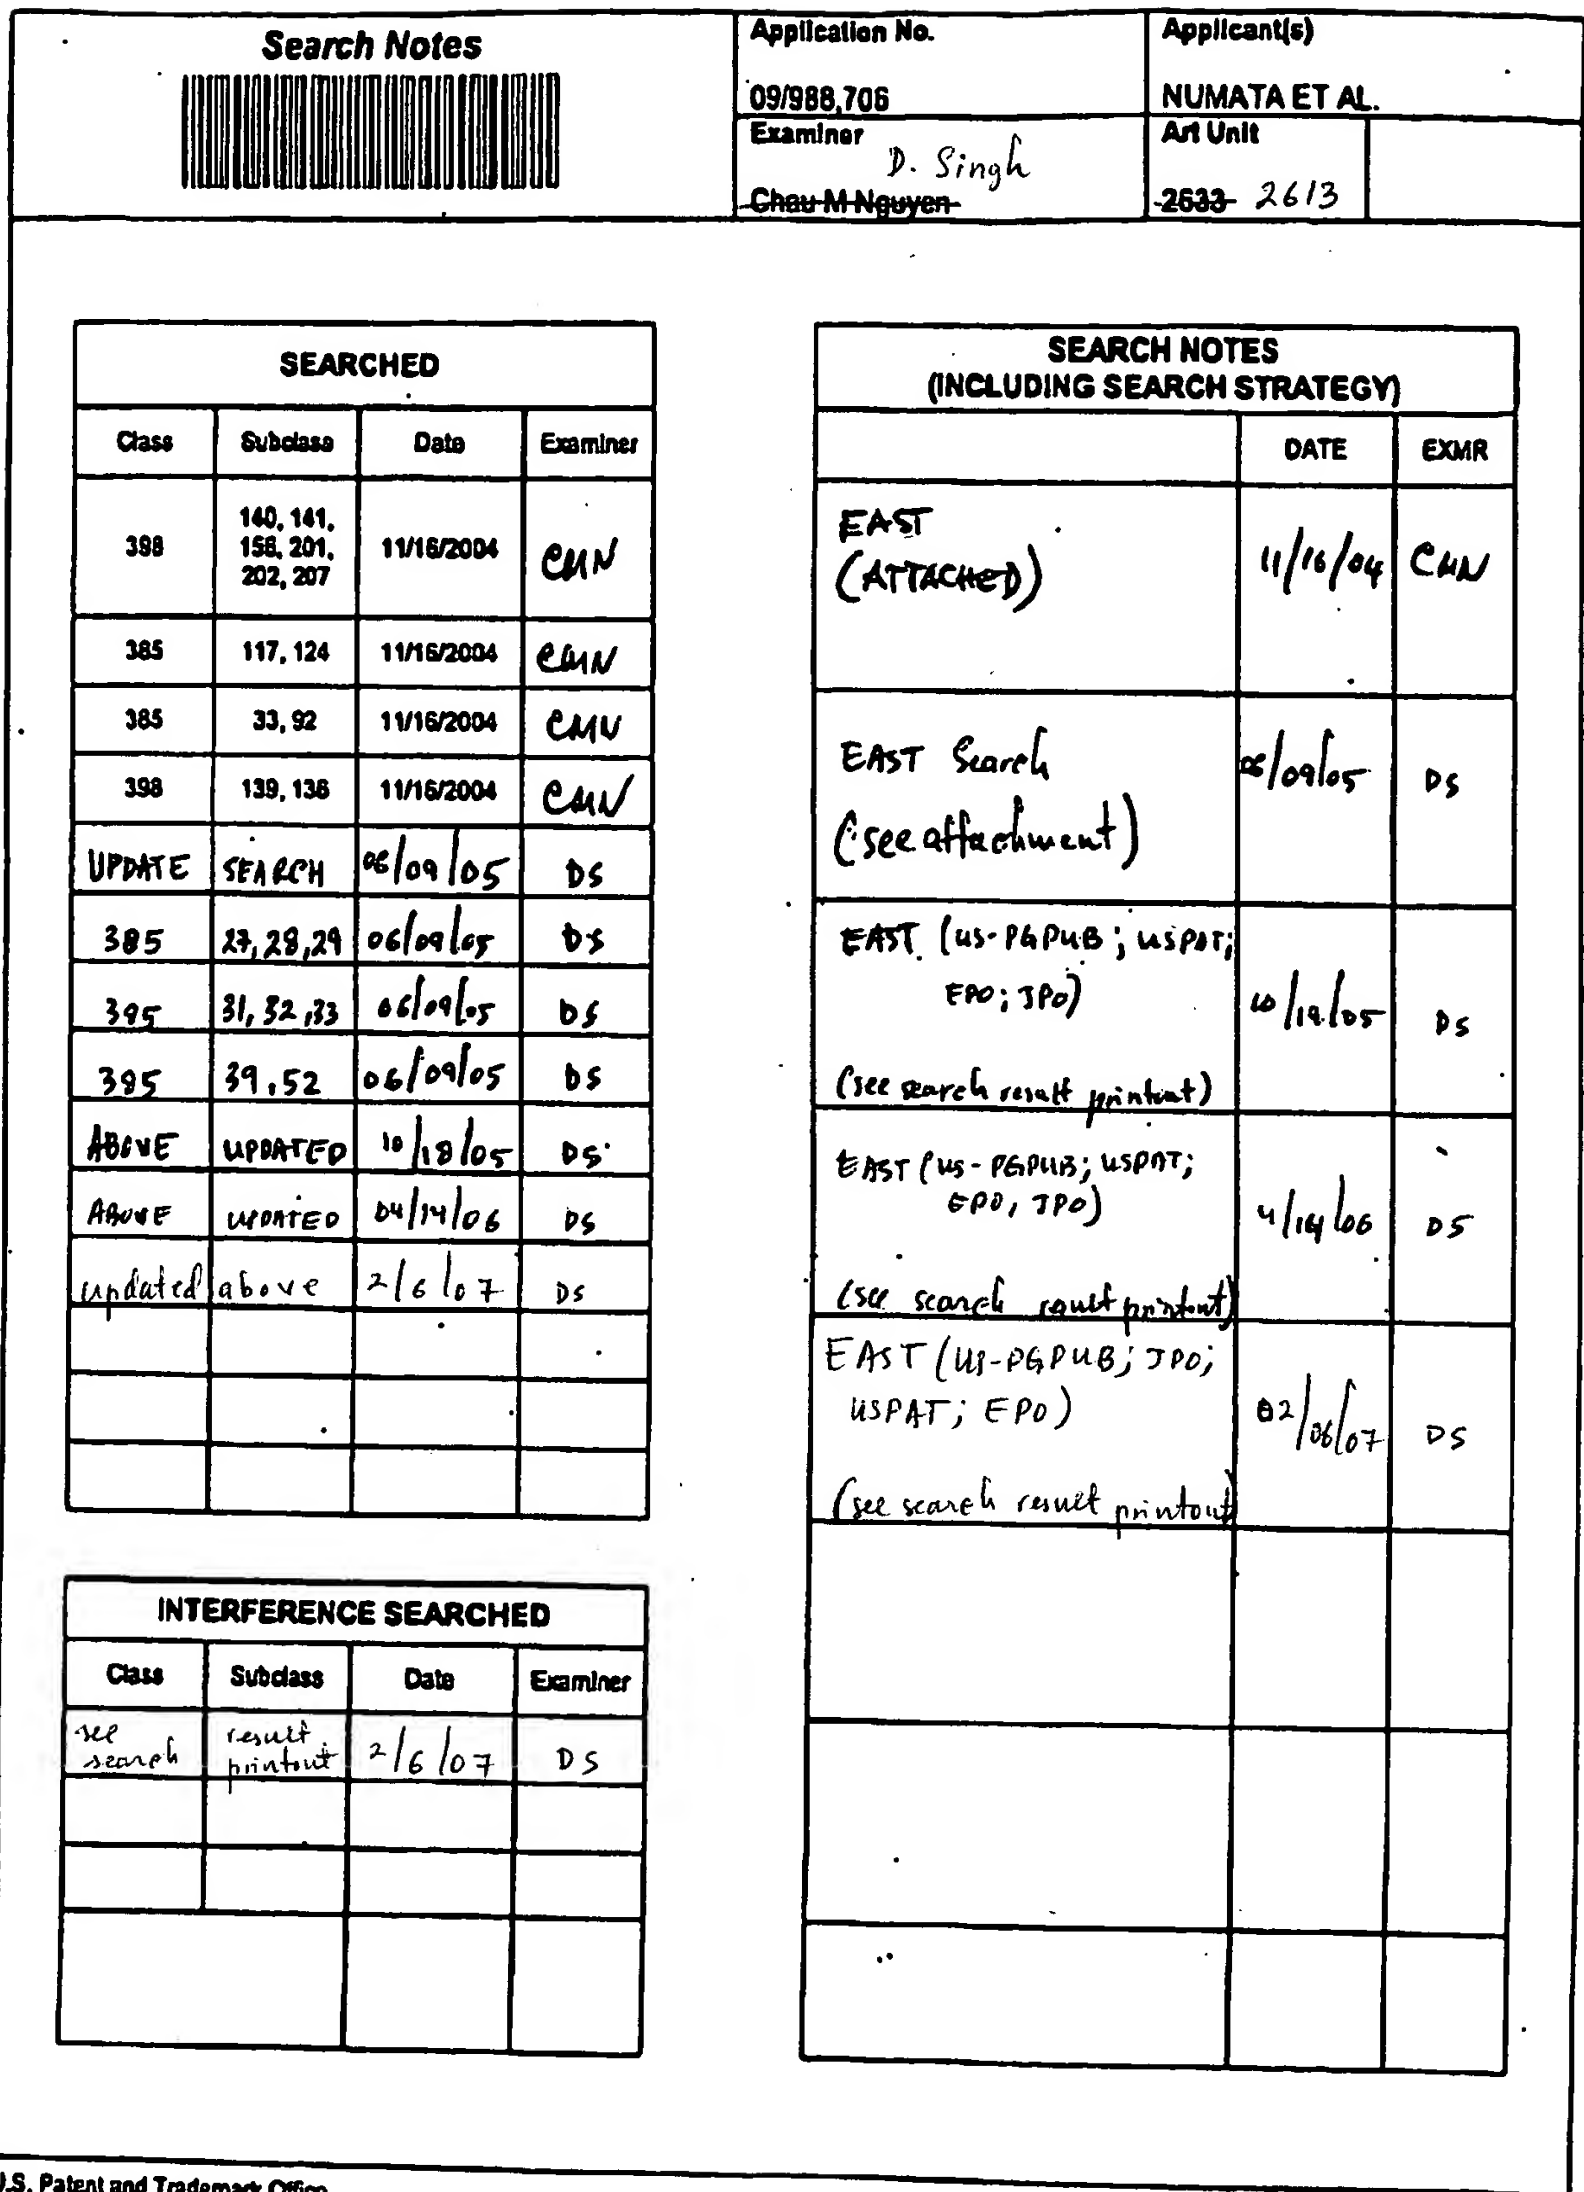 Search Notes
Application No.
09/988,706
Applicant(s)
NUMATA ET AL.
Examiner
D. Singh
Chau M Nguyen
Art Unit
2633 2613
SEARCHED
Class Subclass Date Examiner
398 140, 141, 11/16/2004 CMN
158, 201,
202, 207
385 117, 124 11/16/2004 CMN
385 33, 92 11/16/2004 CMN
398 139, 136 11/16/2004 CMN
UPDATE SEARCH 06/09/05 DS
385 27, 28, 29 06/09/05 DS
385 31, 32, 33 06/09/05 DS
385 39, 52 06/09/05 DS
ABOVE UPDATED 10/18/05 DS
ABOVE UPDATED 04/14/06 DS
updated above 2/6/07 DS
INTERFERENCE SEARCHED
Class Subclass Date Examiner
see result 2/6/07 DS
search printout
SEARCH NOTES
(INCLUDING SEARCH STRATEGY)
DATE EXMR
EAST 11/16/04 CMN
(ATTACHED)
EAST Search 06/09/05 DS
(see attachment)
EAST (US-PGPUB; USPAT;
EPO; JPO) DS
(see search result printout)
EAST (US-PGPUB; USPAT;
EPO, JPO) 4/14/06 DS
(see search result printout)
EAST (US-PGPUB; JPO;
USPAT; EPO) 02/06/07 DS
(see search result printout
U.S. Patent and Trademark Office